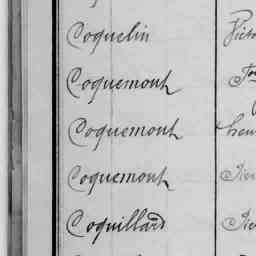 Coquelin
Coquemont
Coquemont
Coquemont
Coquillard